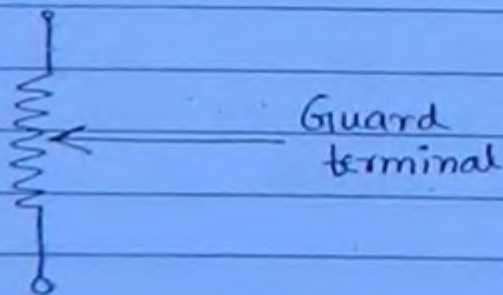 Guard
terminal